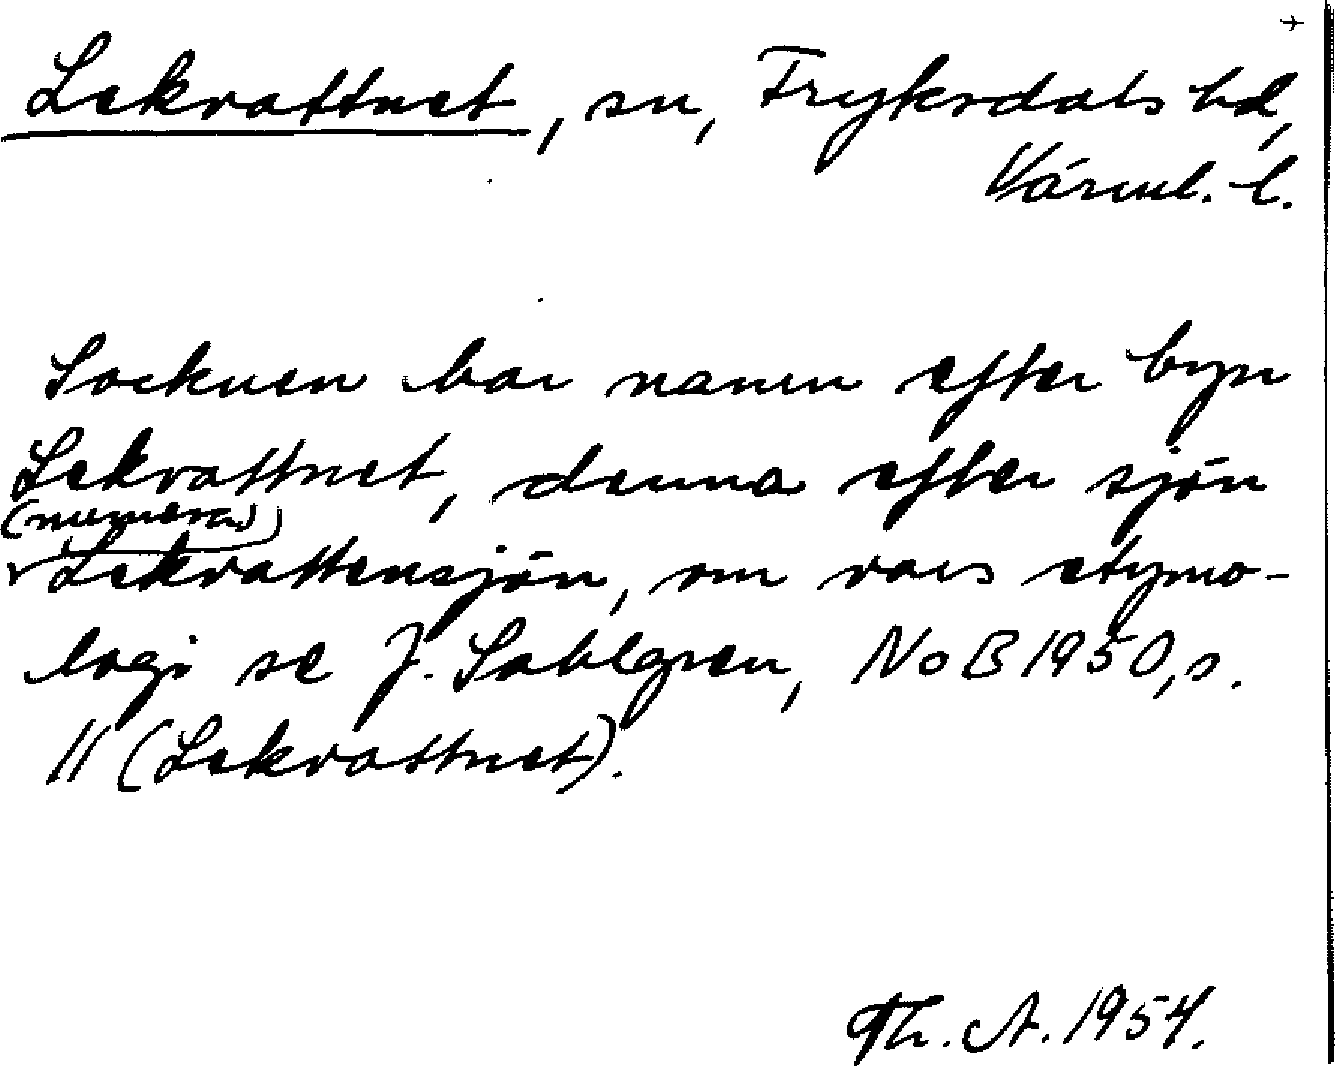 Lekvattnet, sn, Fryksdals hd,
Värml. l.
Socknen har namn efter byn
Lekvattnet, denna efter sjön
(numera)
Lekvattensjön, om vars etymo-
logi se J. Sahlgren, NoB 1950, s.
11 (Lekvattnet).
Th. A. 1954.